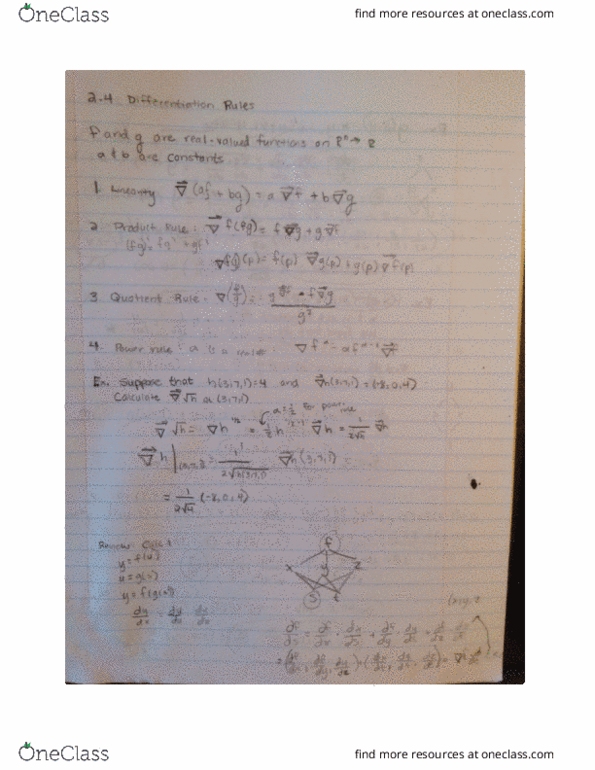 OneClass
find more resources at oneclass.com
2.4 Differentiation Rules
f and g are real-valued functions on Rⁿ → R
a & b are constants
1. Linearity ∇(af + bg) = a∇f + b∇g
2. Product Rule: ∇f(g) = f∇g + g∇f
(fg)' = fg' + gf'
∇(fg)(p) = f(p) ∇g(p) + g(p) ∇f(p)
3. Quotient Rule: ∇(f/g) = g∇f - f∇g / g²
4. Power rule: a is a ∇fᵃ = afᵃ⁻¹∇f
Ex. Suppose that h(3,7,1)=4 and ∇h(3,7,1)=(-8,0,4)
Calculate ∇√h at (3,7,1)
a=1/2 for power rule
∇√h = ∇h^1/2 = 1/2 h^1/2-1 ∇h = 1/2√h ∇h
∇h|(3,7,1) = 1/2√h(3,7,1) ∇h(3,7,1) =
= 1/2√4 (-8,0,4)
Review Calc 1
y = f(u)
u = g(x)
y = f(g(x))
dy/dx = dy/du du/dx
f
x y z
s t
(x,y,z
OneClass
find more resources at oneclass.com